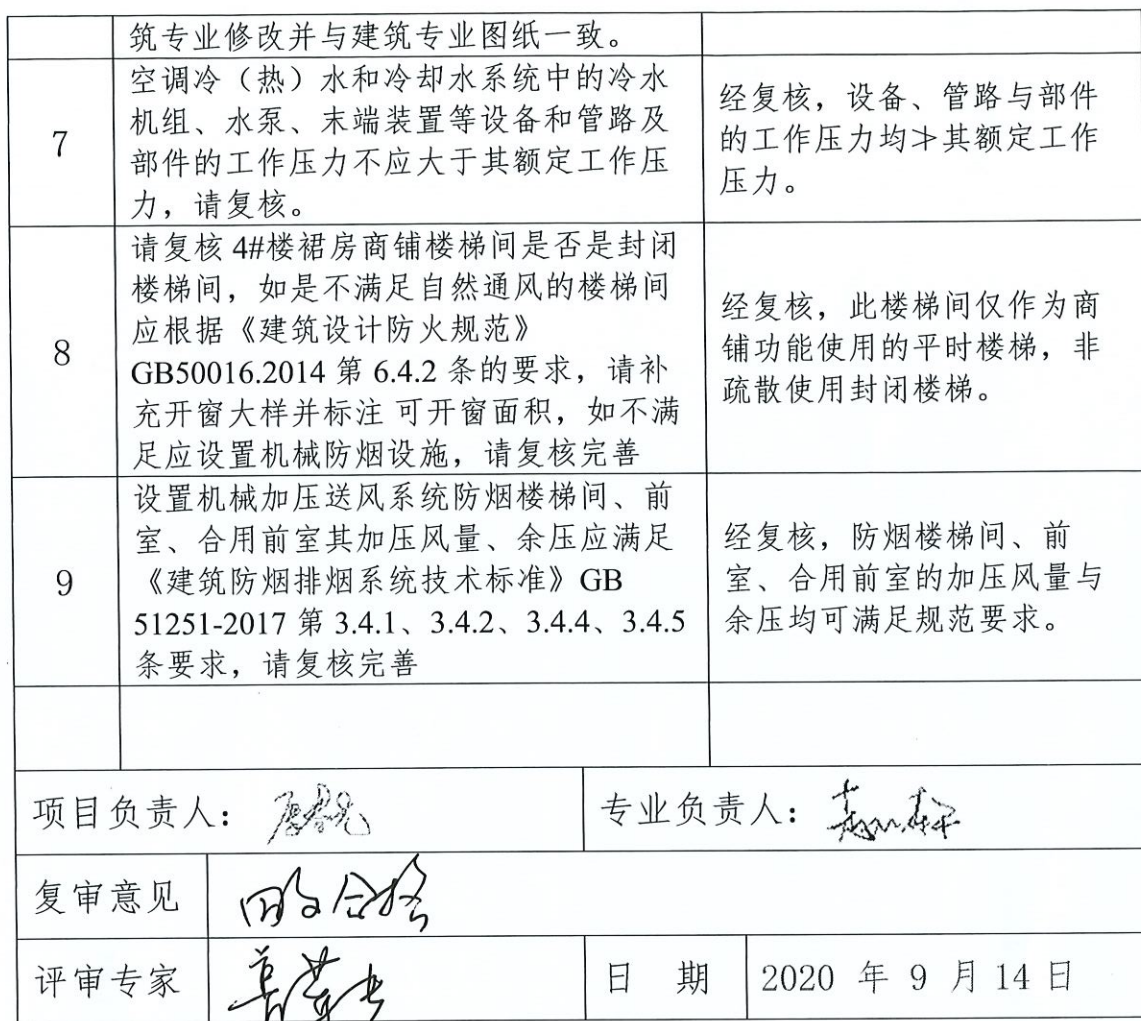 筑专业修改并与建筑专业图纸一致。
7
空调冷（热）水和冷却水系统中的冷水
机组、水泵、末端装置等设备和管路及
部件的工作压力不应大于其额定工作压
力，请复核。
经复核，设备、管路与部件
的工作压力均≯其额定工作
压力。
8
请复核 4#楼裙房商铺楼梯间是否是封闭
楼梯间，如是不满足自然通风的楼梯间
应根据《建筑设计防火规范》
GB50016.2014 第 6.4.2 条的要求，请补
充开窗大样并标注 可开窗面积，如不满
足应设置机械防烟设施，请复核完善
经复核，此楼梯间仅作为商
铺功能使用的平时楼梯，非
疏散使用封闭楼梯。
9
设置机械加压送风系统防烟楼梯间、前
室、合用前室其加压风量、余压应满足
《建筑防烟排烟系统技术标准》GB
51251-2017 第 3.4.1、3.4.2、3.4.4、3.4.5
条要求，请复核完善
经复核，防烟楼梯间、前
室、合用前室的加压风量与
余压均可满足规范要求。
项目负责人：
专业负责人：
复审意见 合格
评审专家
日 期 2020 年 9 月 14 日